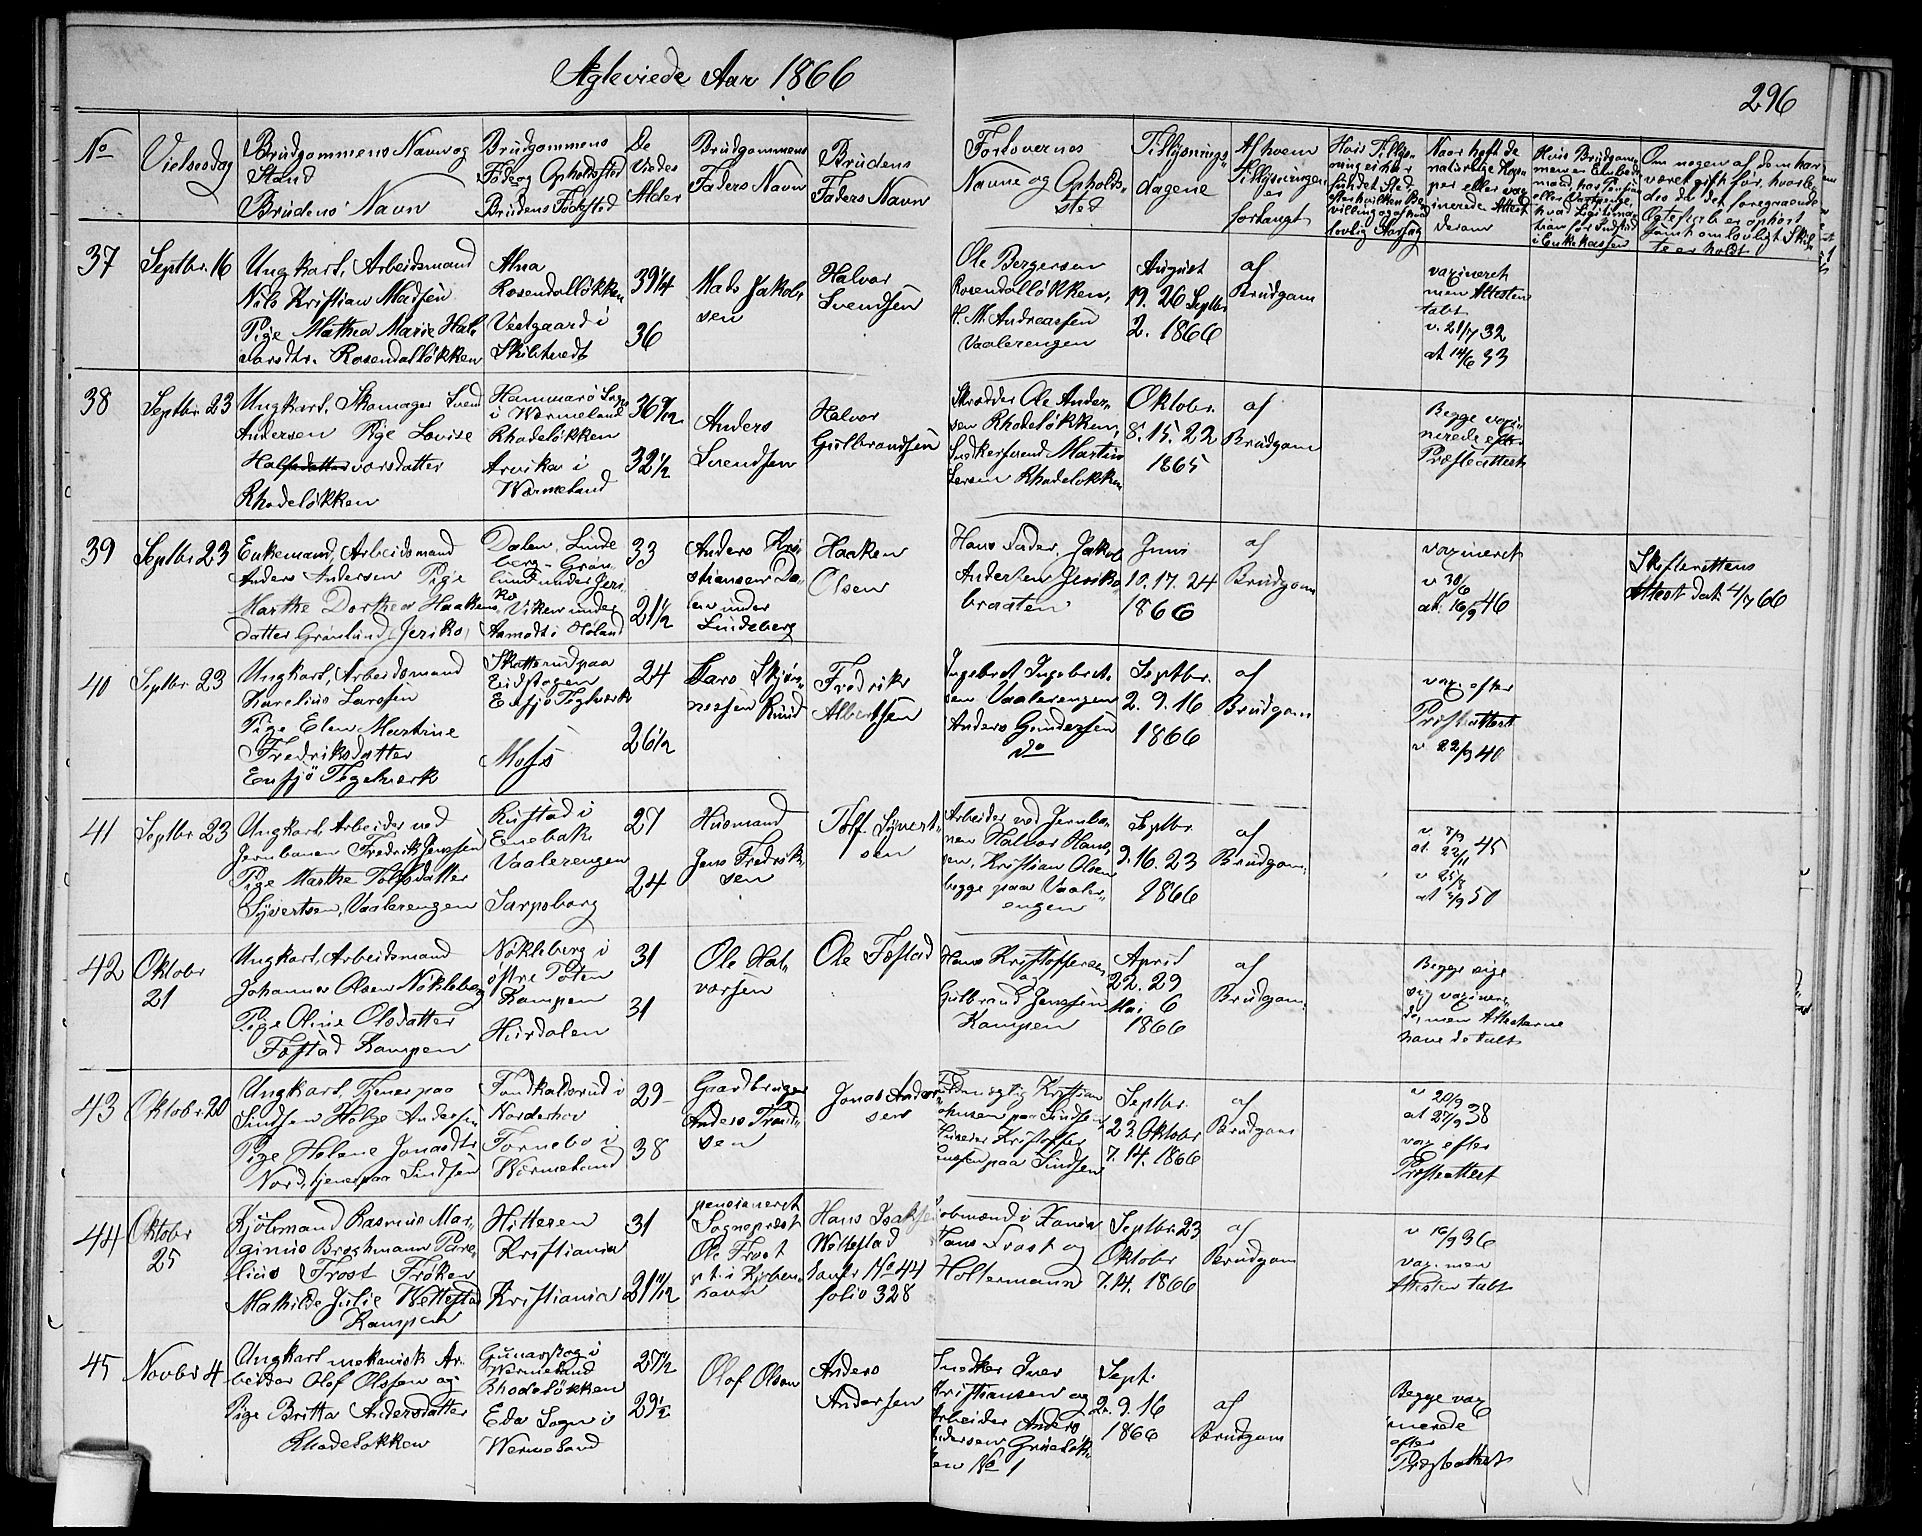 Ægteviede Aar 1866
296
No
Vielsesdag
Brudgommens Navn og
Stand
Brudens Navn
Brudgommens
Føde og Opholdssted
Brudens Fødested
De
Viedes
Alder
Brudgommens
Faders Navn
Brudens
Faders Navn
Forlovernes
Navne og Opholds-
sted
Tillysnings-
dagene
Af hvem
Tillysningen
er
forlangt
37
Septbr. 16
Ungkarl, Arbeidsmand
Nils Kristian Madsen
Pige Mathea Marie Hal-
vorsdtr. Rosendalløkken
Alna
Rosendalløkken
Vestgaard i
39 1/4
36
Mads Jakob-
sen
Halvor
Svendsen
Ole Bergersen
Rosendalløkken,
H. M. Andreassen
Vaalerengen
August
19. 26 Septbr
2. 1866
af
Brudgom
vaxineret
men Attesten
tabt
v. 21/7 32
at 14/6 33
38
Septbr 23
Ungkarl, Skomager Svend
Andersen Pige Lovise
Halfsdatter vorsdatter
Rhodeløkken
Hammarö Sogn
i Wermeland
Rhodeløkken
Arvika i
Wermeland
32 1/2
Anders
Svendsen
Halvor
Gulbrandsen
Skrædder Ole Ander-
sen Rhodeløkken,
Snedkersvend Martin
Larsen Rhodeløkken
Oktobr.
8. 15. 22
1865
af
Brudgom
Begge vaxi-
nerede efter
Præsteattest
39
Septbr 23
Enkemand, Arbeidsmand
Anders Andersen Pige
Marthe Dorthea Haakens
datter Grønlund, Jeriko,
Dalen, Linde
berg - Grøn
lund under Jeri
ko, Viken under
Aamodt i Høland
33
21 1/2
Anders Kri-
stiansen Da-
len under
Lindeberg
Haaken
Olsen
Hans Fader, Jakob
Andersen Jeriko
braaten
Juni
10. 17. 24
1866
af
Brudgom
vaxineret
v 30/6
at. 16/9 46
Skifterettens
Attest dat. 4/7 66
40
Septbr 23
Ungkarl, Arbeidsmand
Karelius Larssen
Pige Elen Martine
Fredriksdatter
Ensjö Tegelværk
Skatterud paa
Eidskogen
Ensjö Teglværk
Moss
24
26 1/2
Lars Skjøn-
nessen Ruud
Fredrik
Albertsen
Ingebret Ingebret-
sen Vaalerengen
Anders Gundersen
do
Septbr.
2. 9. 16
1866
af
Brudgom
vax. efter
Præsteattest
v 22/9 40
41
Septbr 23
Ungkarl, Arbeider ved
Jernbanen Fredrik Jenssen
Pige Marthe Tolfsdatter
Syvertsen, Vaalerengen
Rustad i
Enebak
Vaalerengen
Sarpsborg
27
24
Husmand
Jens Fredrik-
sen
Tolf. Syvert-
sen
Arbeider ved Jernba-
nen Halvor Hans-
sen, Kristian Olsen
begge paa Vaaler-
engen
Septbr.
9. 16. 23
1866
af
Brudgom.
at 22/11 45
v 25/8
50
42
Oktobr
21
Ungkarl, Arbeidsmand
Johannes Olsen Nökleberg
Pige Oline Olsdatter
Fæstad Kampen
Nökleberg i
østre Toten
Kampen
Hurdalen
31
31
Ole Hal-
vorsen
Ole Fæstad
Hans Kristoffersen
og
Gulbrand Jenssen
Kampen
April
22. 29
Mai 6
1866
af
Brudgom
Begge sige
sig vaxinere-
de, men Attesterne
have de tabt
43
Oktobr 20
Ungkarl, Tjener paa
Sindsen Helge Anderssen
Pige Helene Jonasdtr
Nord, tjener paa Sindsen
Norderhov
Fornebo i
Wermeland
29
38
Gaardbruger
Anders Trond-
sen
Jonas Anders-
sen
Septbr.
23. Oktobr
7. 14. 1866
af
Brudgom
v 20/9
at 27/9 38
vax efter
Præsteattest
44
Oktobr
25
Kjöbmand Rasmus Mar-
ginus Broghmann Pare-
lius Frost Frøken
Mathilde Julie Wettestad
Kampen
Hitteren
Kristiania
Kristiania
31
21 11/12
pensioneret
Sognepræst
Ole Frost
p. t. i Kjøben-
havn
Hans Isaksen
Wettestad
No 44
folio 328
Hans Frost og
Holtermann
Septbr. 23
Oktobr
7. 14. 1866
af
Brudgom
v 16/9 36
vax. men
Attesten tabt
45
Novbr 4
Ungkarl mekanisk Ar-
beider Olof Olssen og
Pige Britta Andersdatter
Rhodeløkken
Gunarskog i
Wermeland
Rhodeløkken
Eda Sogn i
Wermeland
27 1/2
29 1/2
Olof Olsen
Anders
Andersen
Snedker Iver
Kristiansen og
Arbeider Anders
Andersen Grüneløk-
ken No 1
Sept.
2. 9. 16
1866
af
Brudgom
Begge vax
inerede
efter
Præsteattest